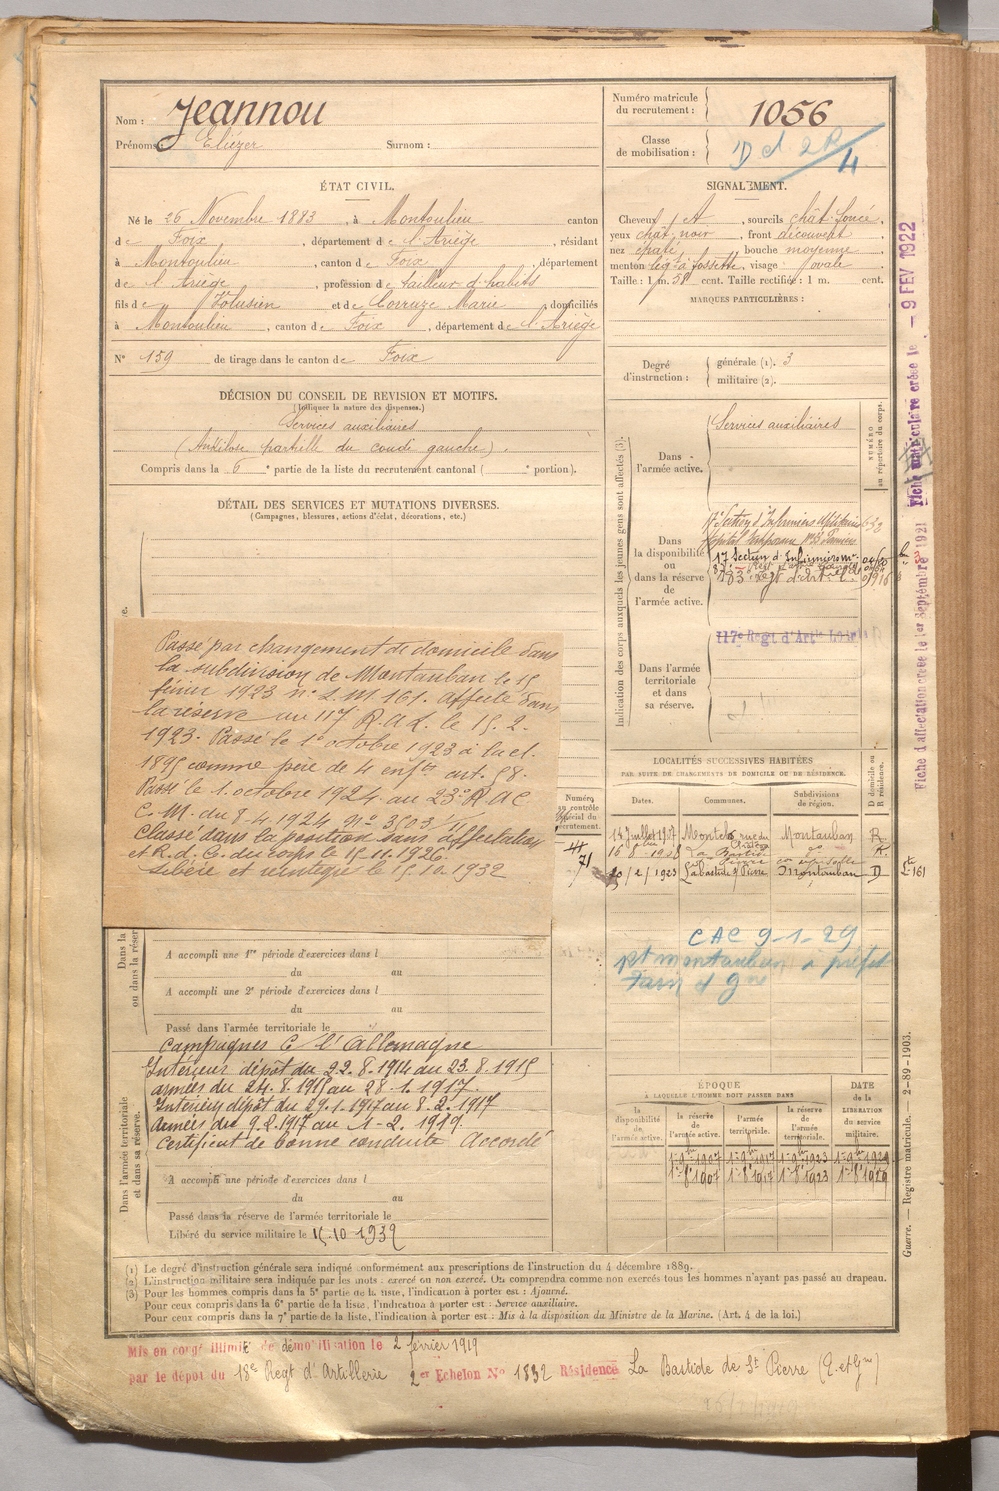 Nom : Jeannou
Prénoms : Eliézer Surnom :
Numéro matricule du recrutement : 1056
Classe de mobilisation :
ÉTAT CIVIL.
Né le 26 Novembre 1883, à Montoulieu canton
de Foix, département de l'Ariège, résidant
à Montoulieu, canton de Foix, département
de l'Ariège, profession de tailleur d'habits
fils de Volusien et de Correuze Marie domiciliés
à Montoulieu, canton de Foix, département de l'Ariège
N° 159 de tirage dans le canton de Foix
SIGNALEMENT.
Cheveux, sourcils chât. foncé,
yeux chât. noir, front découvert,
nez épaté, bouche moyenne
menton lég. à fossette, visage ovale
Taille : 1 m. 58 cent. Taille rectifiée : 1 m. cent.
MARQUES PARTICULIÈRES :
Degré d'instruction : générale (1). 3
militaire (2).
DÉCISION DU CONSEIL DE REVISION ET MOTIFS.
(Indiquer la nature des dispenses.)
Services auxiliaires
(Ankilose partielle du coude gauche).
Compris dans la 6e partie de la liste du recrutement cantonal ( e portion).
DÉTAIL DES SERVICES ET MUTATIONS DIVERSES.
(Campagnes, blessures, actions d'éclat, décorations, etc.)
Passé par changement de domicile dans
la subdivision de Montauban le 15
février 1923 n° L. M 161. affecté dans
la réserve au 117 R.A.L. le 15.2.
1923. Passé le 1er octobre 1923 à la cl.
1895 comme père de 4 enfts art. 58.
Passé le 1. octobre 1924 au 23e R.A.C
C.M. du 8.4.1924 n° 3503/11
Classé dans la position sans affectation
et R.d.C. du corps le 15.11.1926.
Libéré et réintégré le 15.10.1932
A accompli une 1re période d'exercices dans l
du au
A accompli une 2e période d'exercices dans l
du au
Passé dans l'armée territoriale le
Campagnes C l'Allemagne
Intérieur dépôt du 22.8.1914 au 23.8.1915
armées du 24.8.1915 au 28.1.1917.
Intérieur dépôt du 29.1.1917 au 8.2.1917
Armées du 9.2.1917 au 1-2.1919.
Certificat de bonne conduite Accordé
A accompli une période d'exercices dans l
du au
Passé dans la réserve de l'armée territoriale le
Libéré du service militaire le 15.10 1932
Dans la ou dans la réser
Dans l'armée territoriale et dans sa réserve.
Indication des corps auxquels les jeunes gens sont affectés (3).
NUMÉRO au répertoire du corps.
Dans l'armée active. Services auxiliaires
Dans la disponibilité ou dans la réserve de l'armée active.
17e Section d'Infirmiers Militaires
17 Section d'Infirmiers m.
183e Regt d'art
117e Regt d'Artie Lourde
Dans l'armée territoriale et dans sa réserve.
LOCALITÉS SUCCESSIVES HABITÉES
PAR SUITE DE CHANGEMENTS DE DOMICILE OU DE RÉSIDENCE.
Numéro au contrôle spécial du recrutement.
Dates. Communes. Subdivisions de région. D domicile ou R résidence.
14 Juillet 1907 Montech rue du Château Montauban R
16-8-1908 La Bastide St Pierre do R.
20/2/1923 Labastide St Pierre Montauban D
71
CAC 9-1-29
ÉPOQUE
A LAQUELLE L'HOMME DOIT PASSER DANS
la disponibilité de l'armée active. la réserve de l'armée active. l'armée territoriale. la réserve de l'armée territoriale.
DATE de la LIBÉRATION du service militaire.
1er 9bre 1907 1er 9bre 1917 1er 9bre 1923 1er 9bre 1929
1er 8bre 1907 1er 8bre 1917 1er 8bre 1923 1er 8bre 1929
Fiche d'affectation créée le 1er Septembre 1921
Fiche matriculaire créée le - 9 FEV 1922
Guerre. — Registre matricule. — 2-89-1903.
(1) Le degré d'instruction générale sera indiqué conformément aux prescriptions de l'instruction du 4 décembre 1889.
(2) L'instruction militaire sera indiquée par les mots : exercé ou non exercé. On comprendra comme non exercés tous les hommes n'ayant pas passé au drapeau.
(3) Pour les hommes compris dans la 5e partie de la liste, l'indication à porter est : Ajourné.
Pour ceux compris dans la 6e partie de la liste, l'indication à porter est : Service auxiliaire.
Pour ceux compris dans la 7e partie de la liste, l'indication à porter est : Mis à la disposition du Ministre de la Marine. (Art. 4 de la loi.)
Mis en congé illimité de démobilisation le 2 février 1919
par le dépôt du 18e Regt d'Artillerie 2er Echelon N° 1832 Résidence La Bastide de St Pierre (T. et Gne)